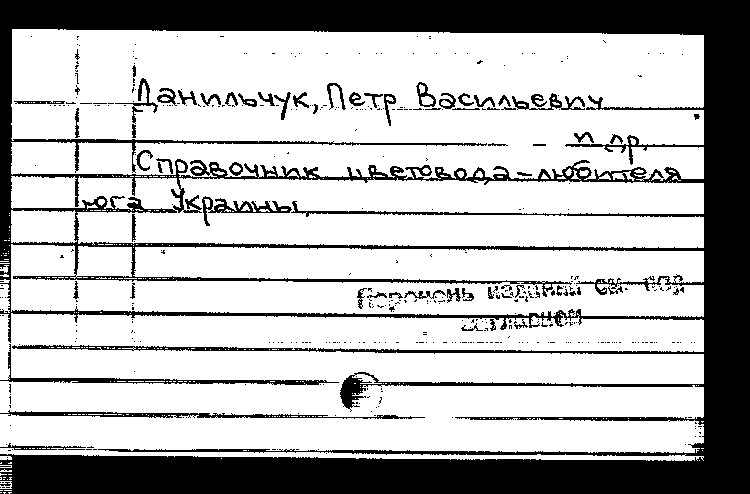 Данильчук, Петр Васильевич
и др.
Справочник цветовода-любителя
юга Украины.
Перечень изданий см. под
заглавием